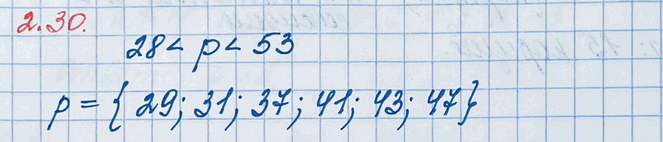 2.30.
28 < p < 53
p = { 29; 31; 37; 41; 43; 47}